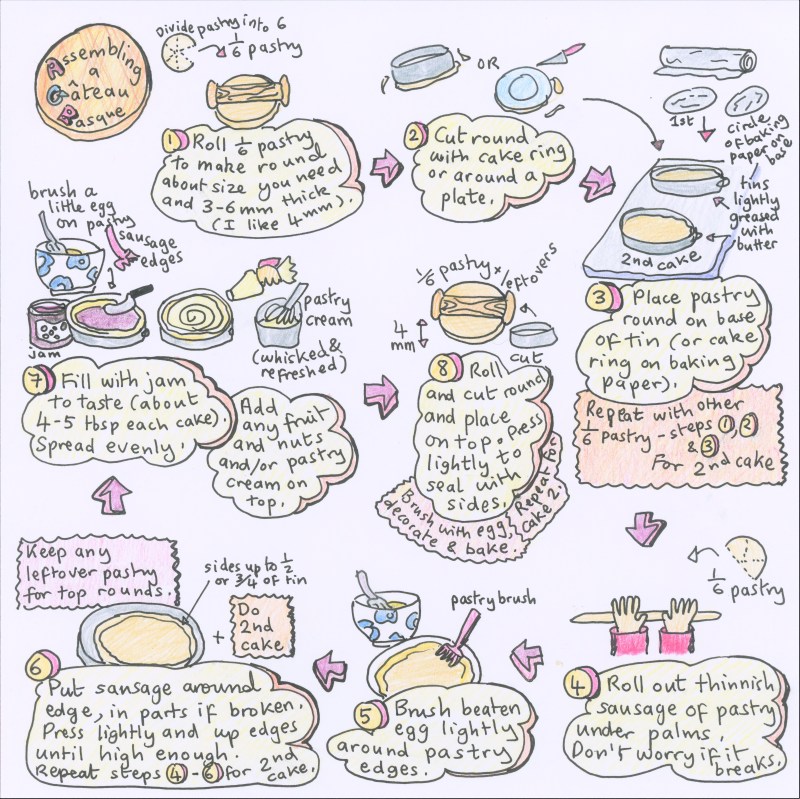 Assembling
a
Gâteau
Basque
Divide pastry into 6
1/6 pastry
1 Roll 1/6 pastry
to make round
about size you need
and 3-6mm thick
(I like 4mm).
OR
2 Cut round
with cake ring
or around a
plate.
1st
circle
of baking
paper on
base
tins
lightly
greased
with
butter
2nd cake
3 Place pastry
round on base
of tin (or cake
ring on baking
paper).
Repeat with other
1/6 pastry - steps 1, 2
& 3
For 2nd cake
1/6 pastry
4 Roll out thinnish
sausage of pastry
under palms.
Don't worry if it
breaks.
pastry brush
5 Brush beaten
egg lightly
around pastry
edges.
Keep any
leftover pastry
for top rounds.
sides up to 1/2
or 3/4 of tin
+
Do
2nd
cake
6 Put sausage around
edge, in parts if broken.
Press lightly and up edges
until high enough.
Repeat steps 4 - 6 for 2nd
cake.
brush a
little egg
on pastry
sausage
edges
jam
pastry
cream
(whisked &
refreshed)
7 Fill with jam
to taste (about
4-5 tbsp each cake)
Spread evenly.
Add
any fruit
and nuts
and/or pastry
cream on
top.
1/6 pastry + leftovers
4
mm
cut
8 Roll
and cut round
and place
on top. Press
lightly to
seal with
sides.
Brush with egg,
decorate & bake.
Repeat for
cake 2.